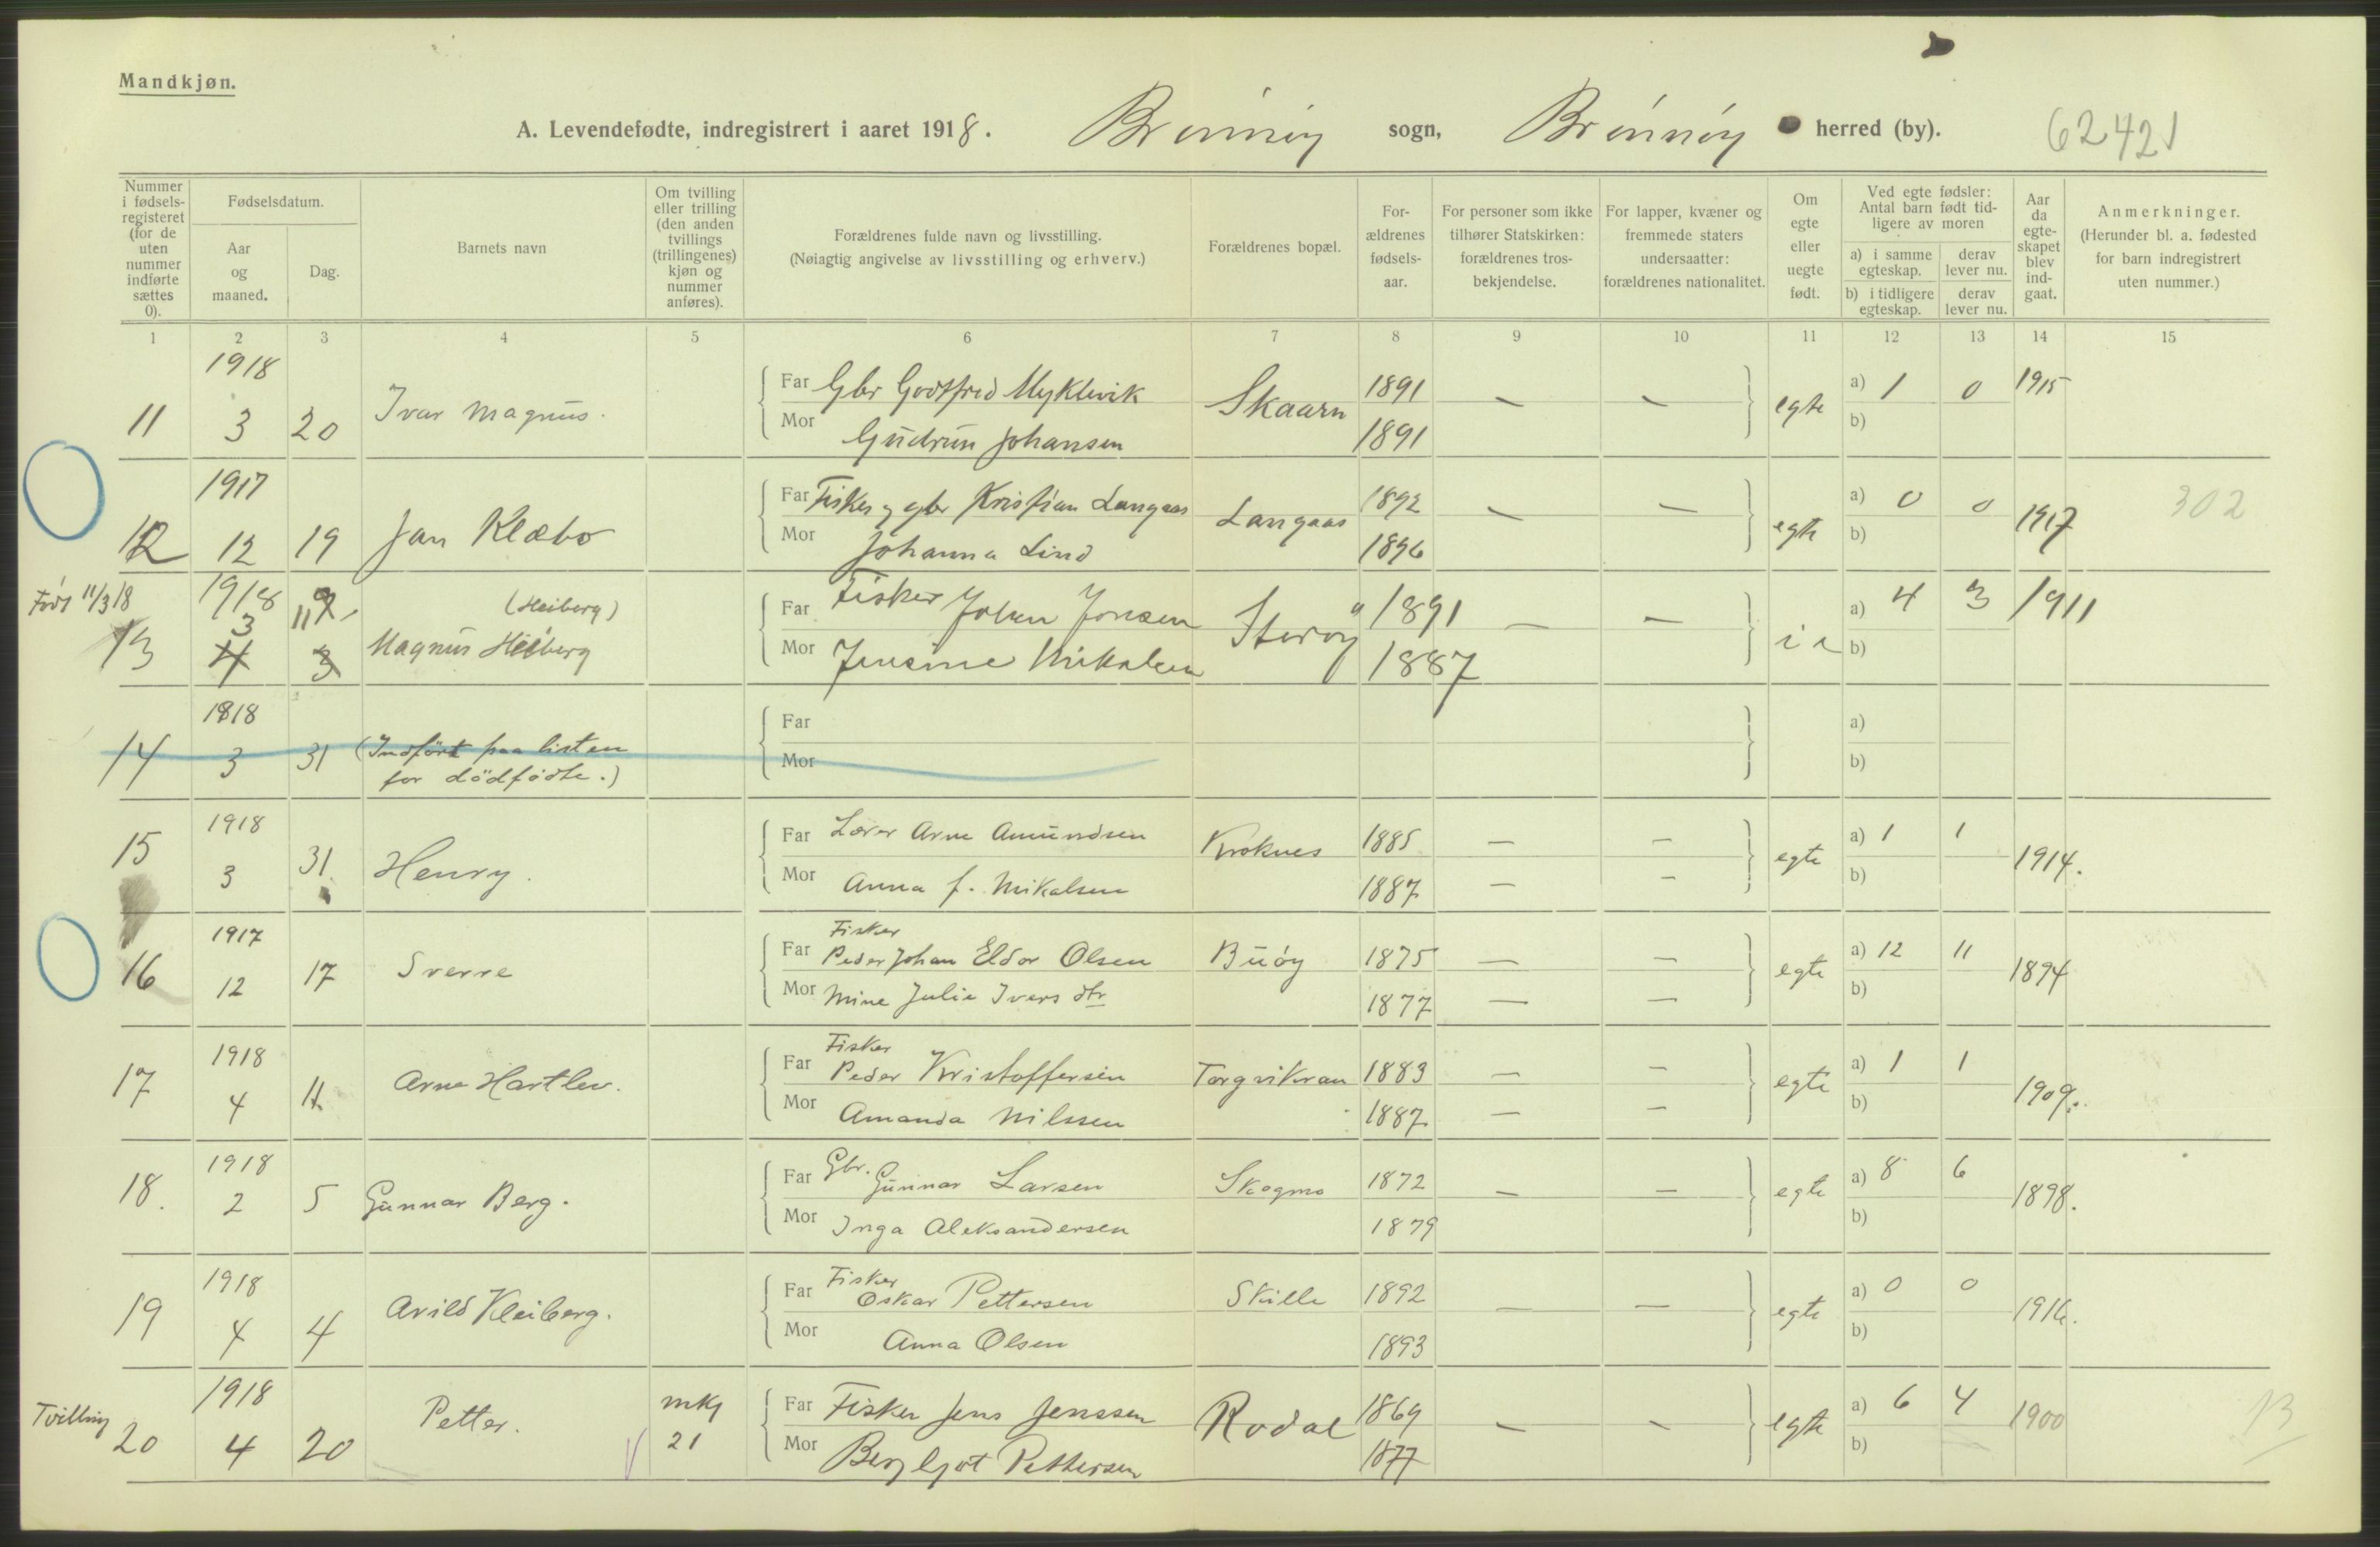 Mandkjøn.
A. Levendefødte, indregistrert i aaret 1918. Brønnøy sogn, Brønnøy herred (by). 62421
Nummer i fødsels-registeret (for de uten nummer indførte sættes 0).
Fødselsdatum.
Aar og maaned.
Dag.
Barnets navn
Om tvilling eller trilling (den anden tvillings (trillingenes) kjøn og nummer anføres).
Forældrenes fulde navn og livsstilling.
(Nøiagtig angivelse av livsstilling og erhverv.)
Forældrenes bopæl.
For-ældrenes fødsels-aar.
For personer som ikke tilhører Statskirken: forældrenes tros-bekjendelse.
For lapper, kvæner og fremmede staters undersaatter: forældrenes nationalitet.
Om egte eller uegte født.
Ved egte fødsler: Antal barn født tid-ligere av moren
a) i samme egteskap.
derav lever nu.
b) i tidligere egteskap.
derav lever nu.
Aar da egte-skapet blev ind-gaat.
Anmerkninger.
(Herunder bl. a. fødested for barn indregistrert uten nummer.)
1 2 3 4 5 6 7 8 9 10 11 12 13 14 15
1918
11 3 20 Ivar Magnus.
Far Gbr Godtfred Myklevik Skaarn 1891 — — egte a) 1 0 1915
Mor Gudrun Johansen 1891 b)
1917
12 12 19 Jan Klæbo
Far Fisker og gbr Kristian Langaas Langaas 1892 — — egte a) 0 0 1917 302
Mor Johanna Lind 1896 b)
Født 11/3 18
1918 3 11 (Heiberg)
13 4 3 Magnus Heiberg
Far Fisker Johan Jonsen Storøy 1891 — — a) 4 3 1911
Mor Jensine Mikalsen 1887 b)
1918
14 3 31 (Indført paa listen
for dødfødte.)
Far a)
Mor b)
1918
15 3 31. Henry.
Far Lærer Arne Amundsen Kroknes 1885 — — egte a) 1 1 1914.
Mor Anna J. Mikalsen 1887 — — b)
1917
16 12 17 Sverre
Fisker
Far Peder Johan Eldor Olsen Buøy 1875 — — egte a) 12 11 1894
Mor Mine Julie Ivers dtr 1877 — — b)
1918
17 4 11. Arne Hartlev.
Fisker
Far Peder Kristoffersen 1883 — — egte a) 1 1 1909.
Mor Amanda Nilssen 1887 — — b)
1918
18. 2 5 Gunnar Berg.
Far Gbr. Gunnar Larsen Skogmo 1872 — — egte a) 8 6 1898.
Mor Inga Aleksandersen 1879 b)
1918
19 4 4 Arild Kleiberg.
Fisker
Far Oskar Pettersen Skille 1892 — — egte a) 0 0 1916.
Mor Anna Olsen 1893 b)
Tvilling
1918
20 4 20 Petter. mkj 21
Far Fisker Jens Jenssen Rodal 1869 — — egte a) 6 4 1900 B
Mor Bergljot Pettersen 1877 b)